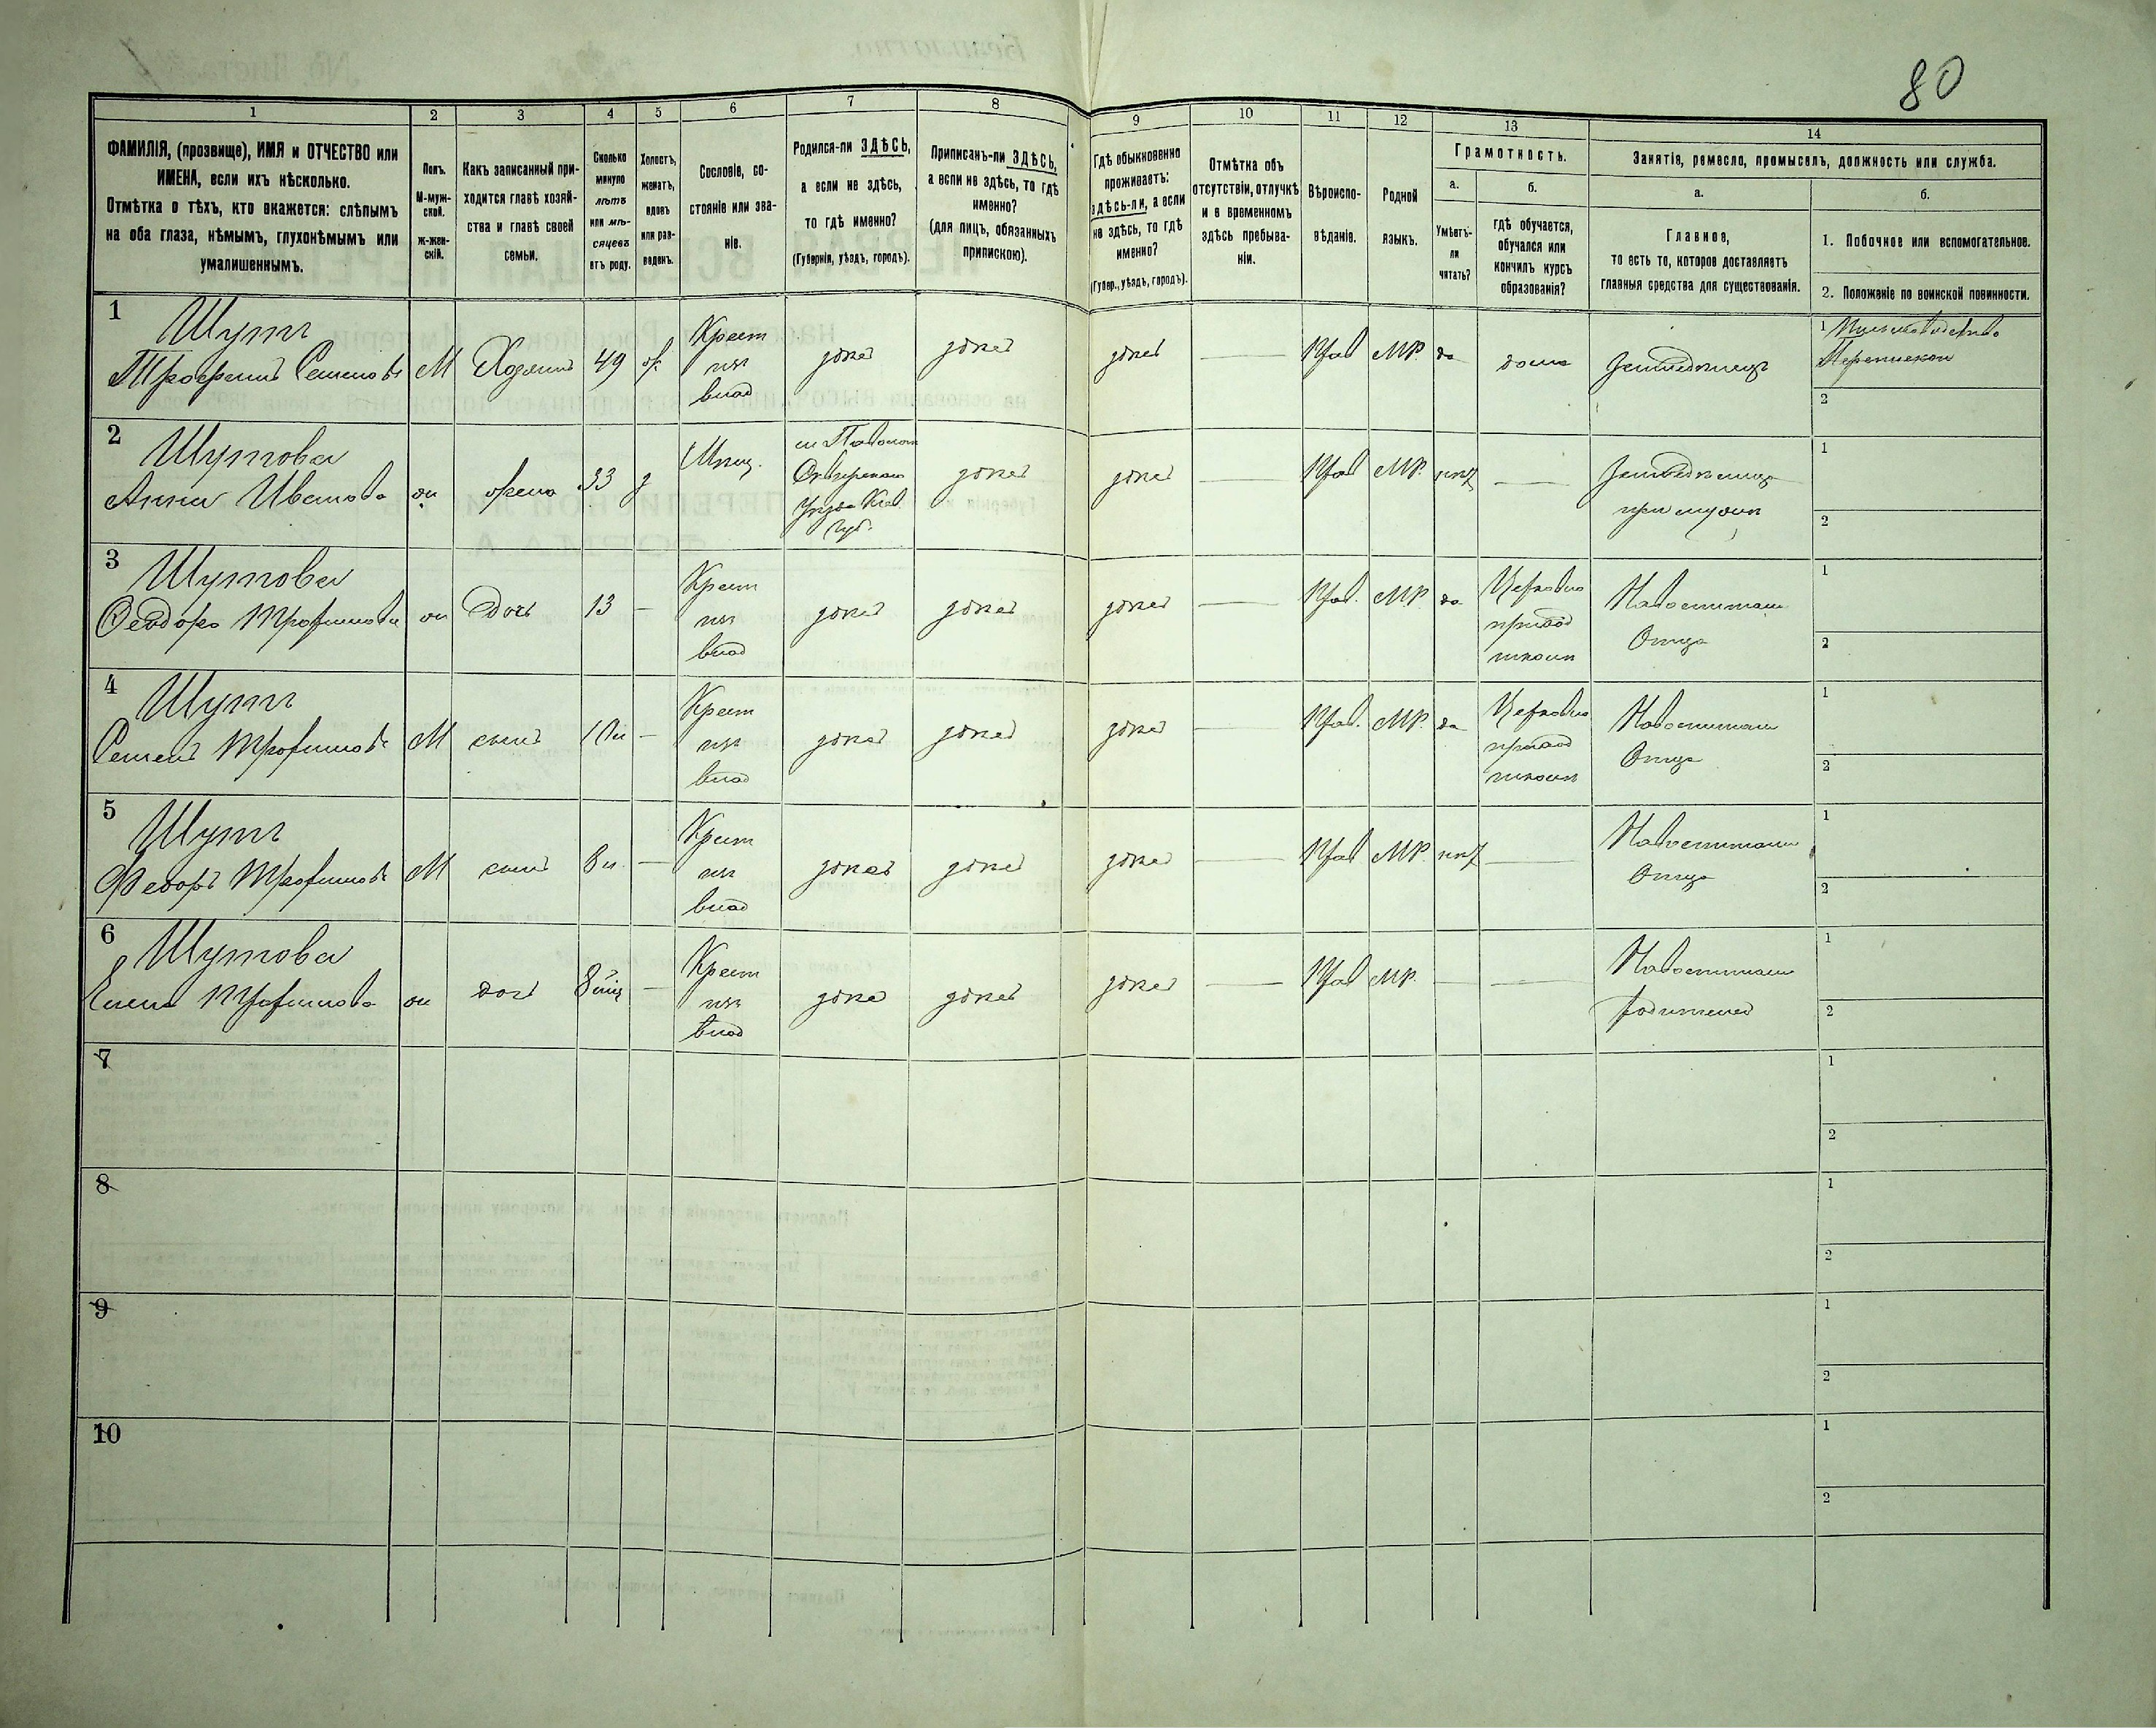 80
1 2 3 4 5 6 7 8 9 10 11 12 13 14
ФАМИЛІЯ, (прозвище), ИМЯ и ОТЧЕСТВО или
ИМЕНА, если ихъ нѣсколько.
Отмѣтка о тѣхъ, кто окажется: слѣпымъ
на оба глаза, нѣмымъ, глухонѣмымъ или
умалишеннымъ.
Полъ.
М-муж-
ской.
ж-жен-
скій.
Какъ записанный при-
ходится главѣ хозяй-
ства и главѣ своей
семьи.
Сколько
минуло
лѣтъ
или мѣ-
сяцевъ
отъ роду.
Холостъ,
женатъ,
вдовъ
или раз-
веденъ.
Сословіе, со-
стояніе или зва-
ніе.
Родился-ли ЗДѢСЬ,
а если не здѣсь,
то гдѣ именно?
(Губернія, уѣздъ, городъ).
Приписанъ-ли ЗДѢСЬ,
а если не здѣсь, то гдѣ
именно?
(для лицъ, обязанныхъ
припискою).
Гдѣ обыкновенно
проживаетъ:
здѣсь-ли, а если
не здѣсь, то гдѣ
именно?
(Губер., уѣздъ, городъ).
Отмѣтка объ
отсутствіи, отлучкѣ
и о временномъ
здѣсь пребыва-
ніи.
Вѣроиспо-
вѣданіе.
Родной
языкъ.
Грамотность.
а.
Умѣетъ-
ли
читать?
б.
гдѣ обучается,
обучался или
кончилъ курсъ
образованія?
Занятіе, ремесло, промыселъ, должность или служба.
а.
Главное,
то есть то, которое доставляетъ
главныя средства для существованія.
б.
1. Побочное или вспомогательное.
2. Положеніе по воинской повинности.
1
Шутъ
Трофимъ Семеновъ
М
Хозяинъ
49
ж
Крест
изъ
влад
здѣсь
здѣсь
здѣсь
Прав
МР
да
дома
Земледѣлецъ
1 Пчеловодство
2
2
Шутова
Анна Иванова
ж
жена
33
з
Мѣщ.
Уѣзда Кіев
Губ.
здѣсь
здѣсь
Прав
МР.
нѣтъ
Земледѣлица
при мужѣ
1
2
3
Шутова
Феодора Трофимова
ж
Дочь
13
Крест
изъ
влад
здѣсь
здѣсь
здѣсь
Прав.
МР
да
Церковно
приход
школѣ
На воспитаніи
Отца
1
2
4
Шутъ
Семенъ Трофимовъ
М
сынъ
10л
Крест
изъ
влад
здѣсь
здѣсь
здѣсь
Прав.
МР.
да
Церковно
приход
школѣ
На воспитаніи
Отца
1
2
5
Шутъ
Федоръ Трофимовъ
М
сынъ
8л.
Крест
изъ
влад
здѣсь
здѣсь
здѣсь
Прав
МР.
нѣтъ
На воспитаніи
Отца
1
2
6
Шутова
Елена Трофимова
ж
дочь
8 міц
Крест
изъ
влад
здѣсь
здѣсь
здѣсь
Прав
МР.
На воспитаніи
родителей
1
2
7
1
2
8
1
2
9
1
2
10
1
2